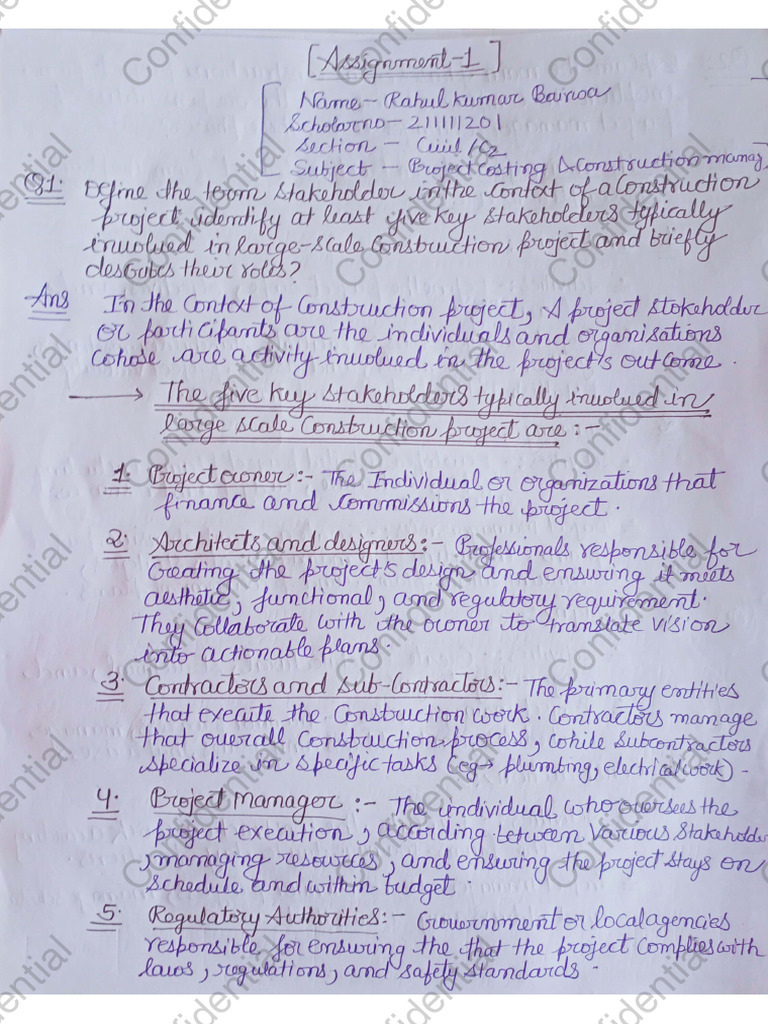 [Assignment-1]
Name - Rahul Kumar Bairwa
Scholar no - 211111201
Section - Civil /C2
Subject - Project Costing & Construction manag
Q1. Define the term stakeholder in the Context of a Construction
project, identify at least five key stakeholders typically
involved in large-scale Construction project and briefly
describes their roles?
Ans In the Context of Construction project, A project stokeholder
or participants are the individuals and organisations
whose are activity involved in the project's outcome.
→ The five key stakeholders typically involved in
large scale Construction project are :-
1. Project owner:- The Individual or organizations that
finance and commissions the project.
2. Architects and designers:- Professionals responsible for
Creating the project's design and ensuring it meets
aesthetic, functional, and regulatory requirement.
They Collaborate with the owner to translate vision
into actionable plans.
3. Contractors and sub-Contractors:- The primary entities
that execute the Construction work. Contractors manage
that overall Construction process, while subcontractors
specialize in specific tasks (eg→ plumbing, electrical work) -
4. Project Manager :- The individual who oversees the
project execution, according between various stakeholder
, managing resources, and ensuring the project stays on
schedule and within budget.
5. Regulatory Authorities:- Government or local agencies
responsible for ensuring the that the project complies with
laws, regulations, and safety standards -
Confidential